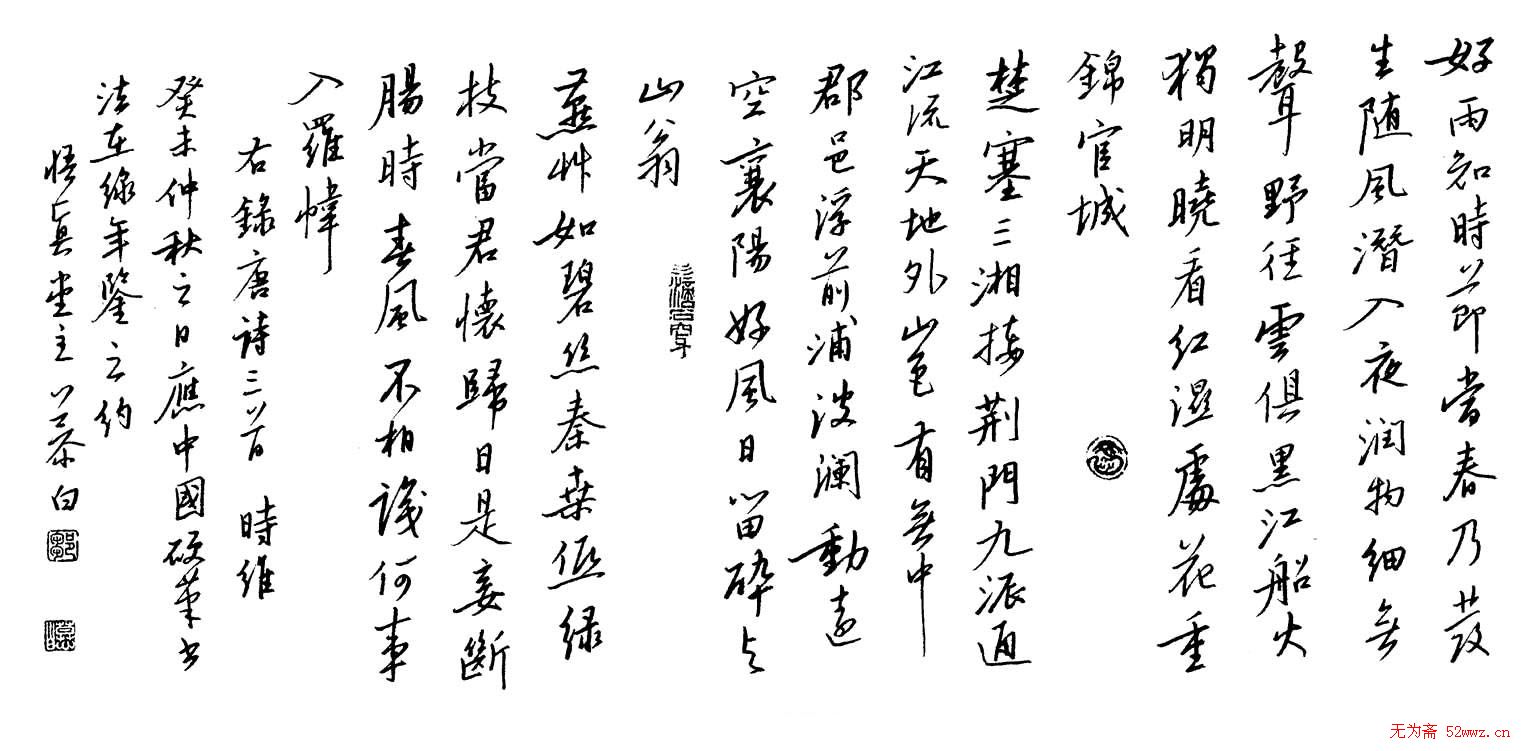 好雨知時節當春乃發
生随風潛入夜润物细無
聲野径雲俱黑江船火
獨明曉看红濕處花重
錦官城
楚塞三湘接荆門九派通
江流天地外山色有無中
郡邑浮前浦波澜動遠
空襄陽好風日留醉与
山翁
燕艸如碧丝秦桑低绿
枝當君懷歸日是妾斷
腸時春風不相識何事
入羅幃
右錄唐詩三首 時維
癸未仲秋之日應中國硬筆书
法在線年鑒之约
悟真堂主慕白
无为斋 52wwz.cn